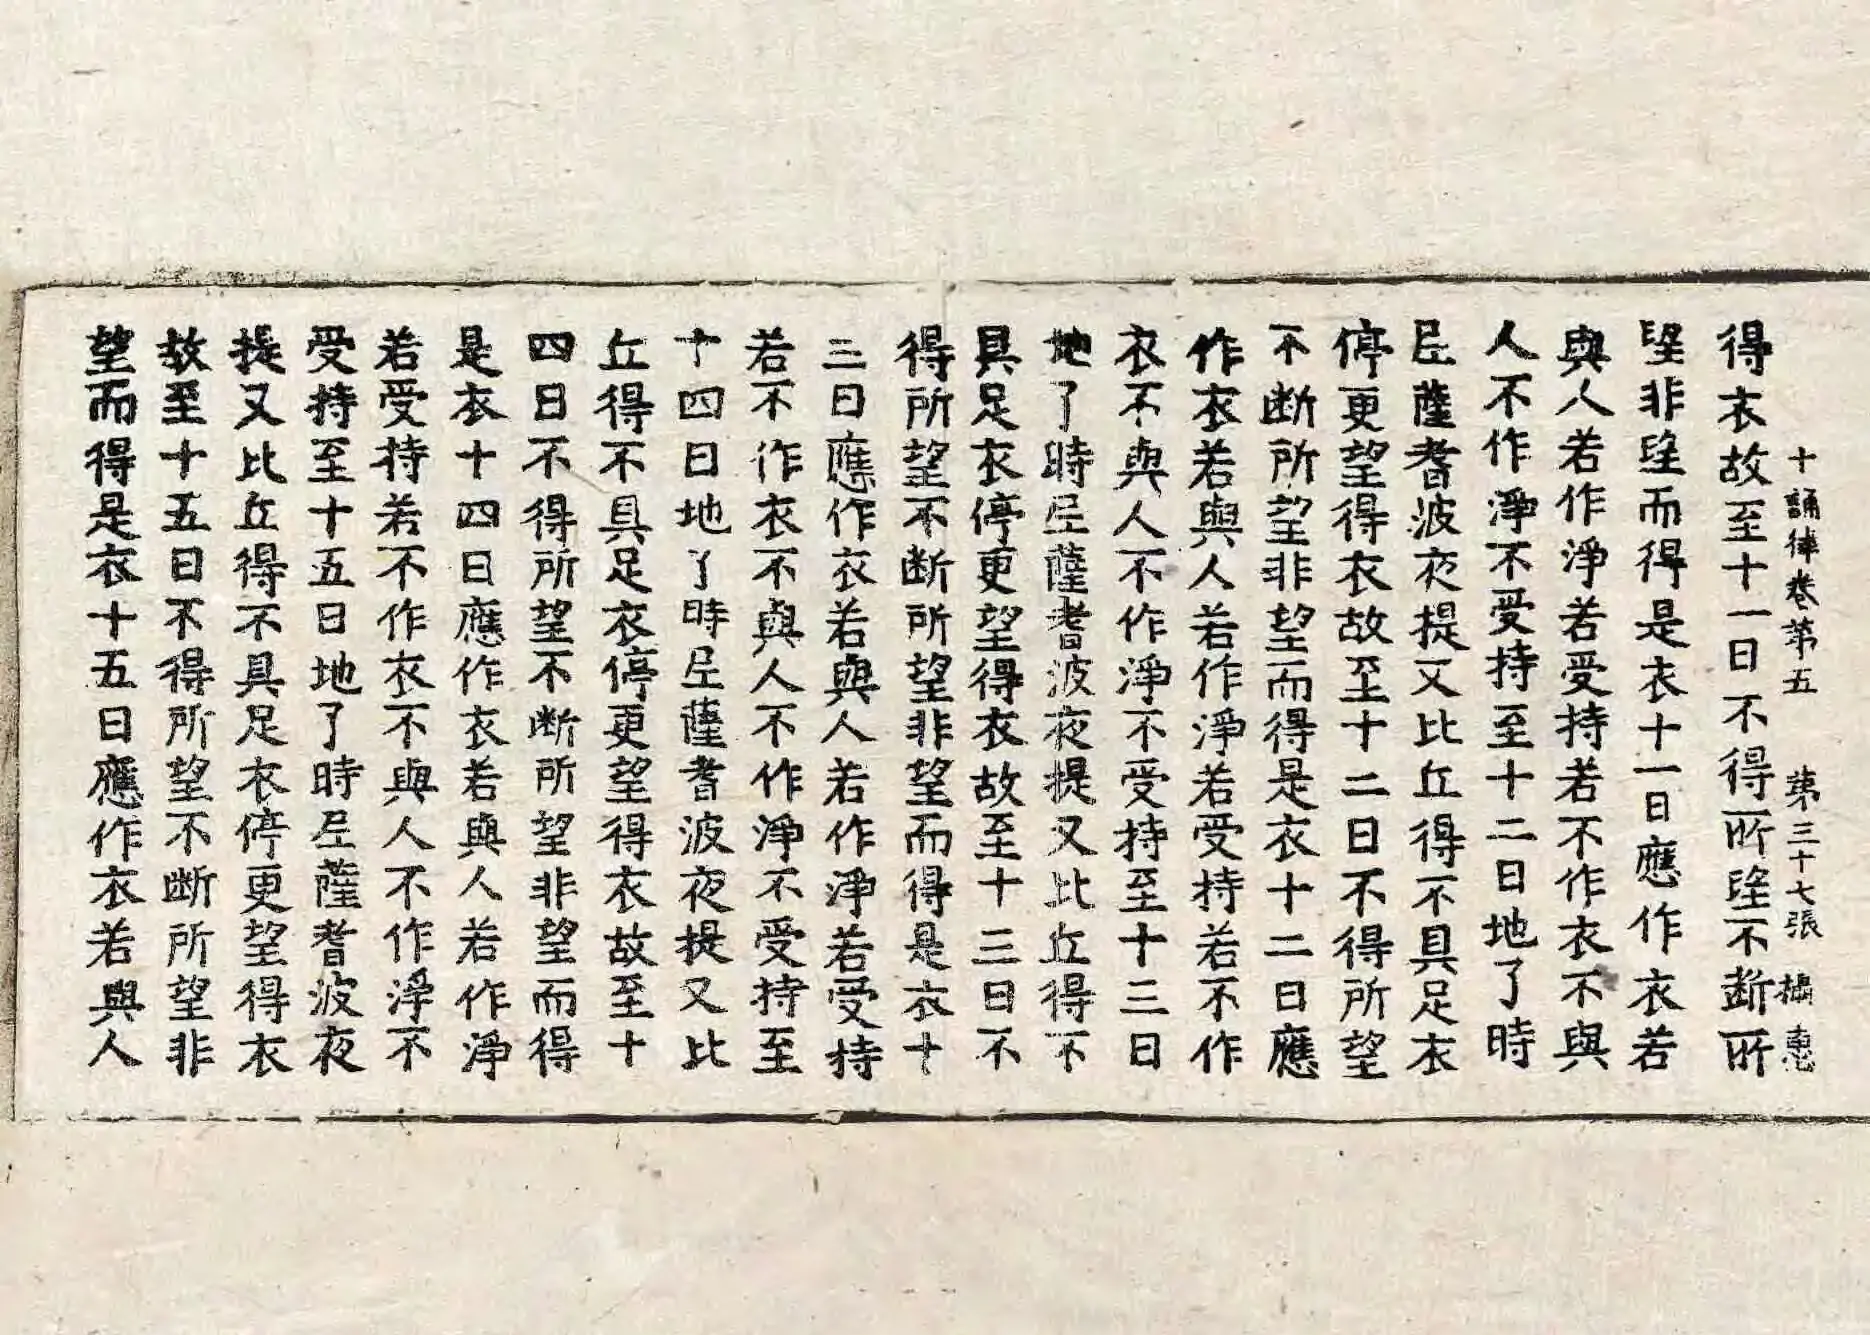 十誦律卷第五 第三十七張 攝 惠
得衣故至十一日不得所望不斷所
望非望而得是衣十一日應作衣若
與人若作淨若受持若不作衣不與
人不作淨不受持至十二日地了時
尼薩耆波夜提又比丘得不具足衣
停更望得衣故至十二日不得所望
不斷所望非望而得是衣十二日應
作衣若與人若作淨若受持若不作
衣不與人不作淨不受持至十三日
地了時尼薩耆波夜提又比丘得不
具足衣停更望得衣故至十三日不
得所望不斷所望非望而得是衣十
三日應作衣若與人若作淨若受持
若不作衣不與人不作淨不受持至
十四日地了時尼薩耆波夜提又比
丘得不具足衣停更望得衣故至十
四日不得所望不斷所望非望而得
是衣十四日應作衣若與人若作淨
若受持若不作衣不與人不作淨不
受持至十五日地了時尼薩耆波夜
提又比丘得不具足衣停更望得衣
故至十五日不得所望不斷所望非
望而得是衣十五日應作衣若與人